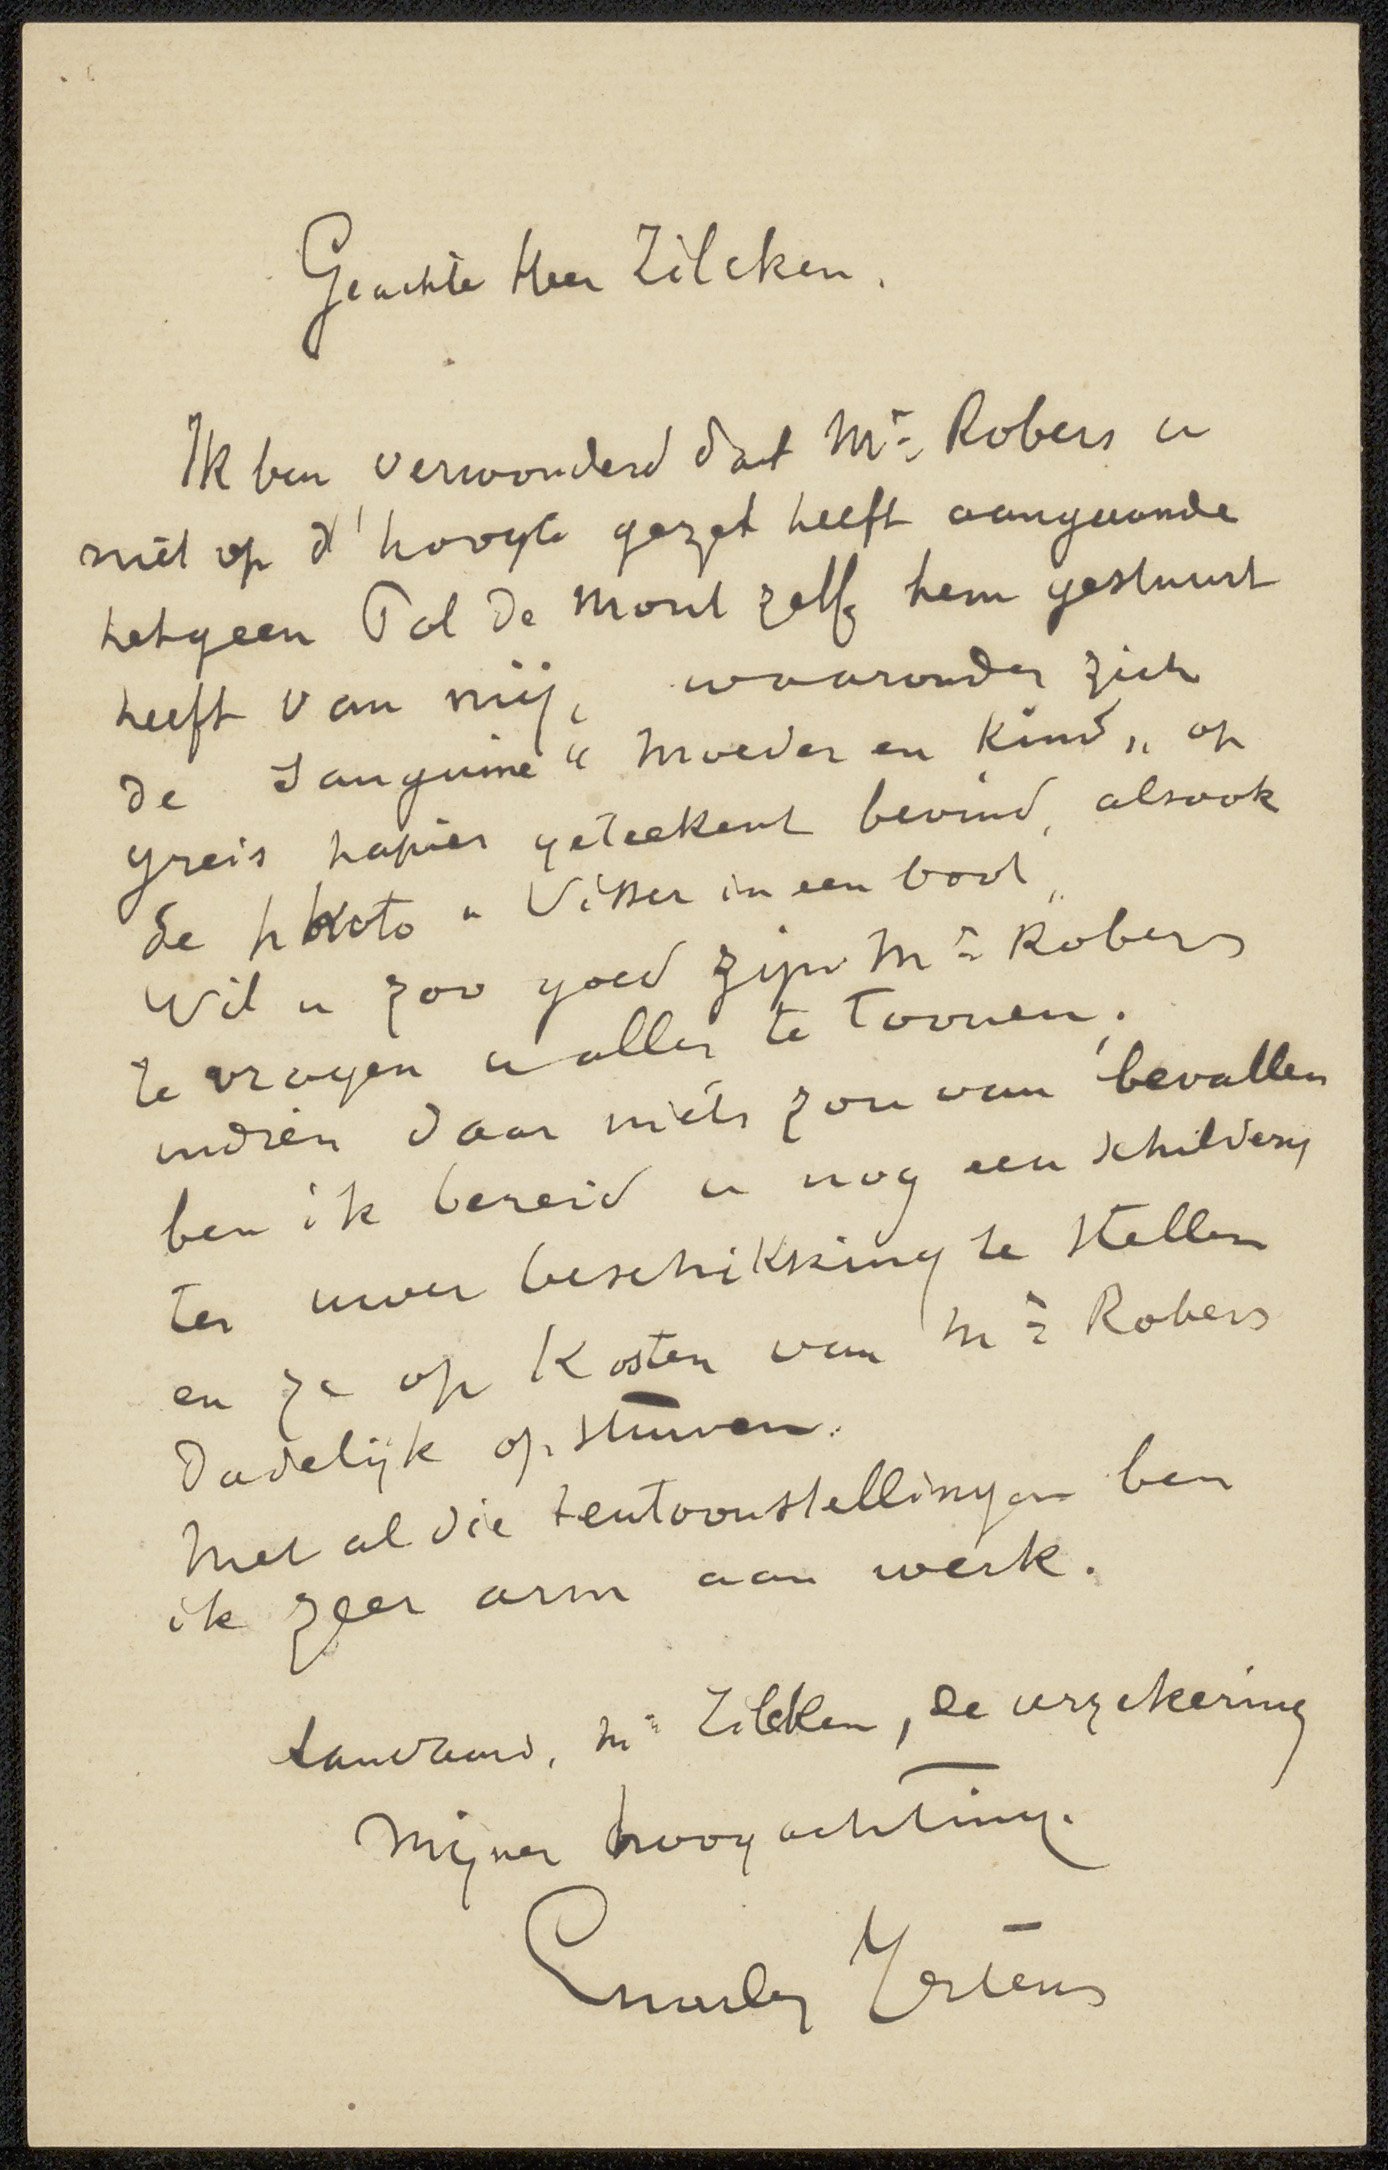 Geachte Heer Zilcken.
Ik ben verwonderd dat Mr. Robers u
niet op d'hoogte gezet heeft aangaande
hetgeen Pol de Mont zelf hem gestuurt
heeft van mij, waaronder zich
de Sanguine "Moeder en Kind" op
greis papier geteekent bevind, alsook
de photo "Visser in een boot"
Wil u zoo goed zijn Mr. Robers
te vragen u alles te toonen.
indien daar niets zou van bevallen
ben ik bereid u nog een schildery
ter uwer beschikking te stellen
en ze op Kosten van Mr. Robers
dadelijk op stuuren.
Met al die tentoonstellingen ben
ik zeer arm aan werk.
Aanvaard, Mr Zilcken, de verzekering
Mijner hoogachting.
Charles Mertens